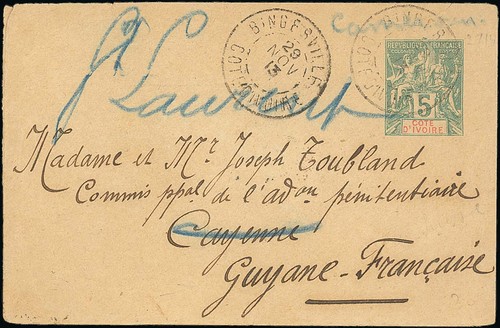 BINGERVILLE
29
NOV
13
COTE D'IVOIRE
BINGER
RÉPUBLIQUE FRANÇAISE
5
COTE
D'IVOIRE
St Laurent
Madame et Mr Joseph Toubland
Commis ppal. de l'adon pénitentiaire
Cayenne
Guyane-Française